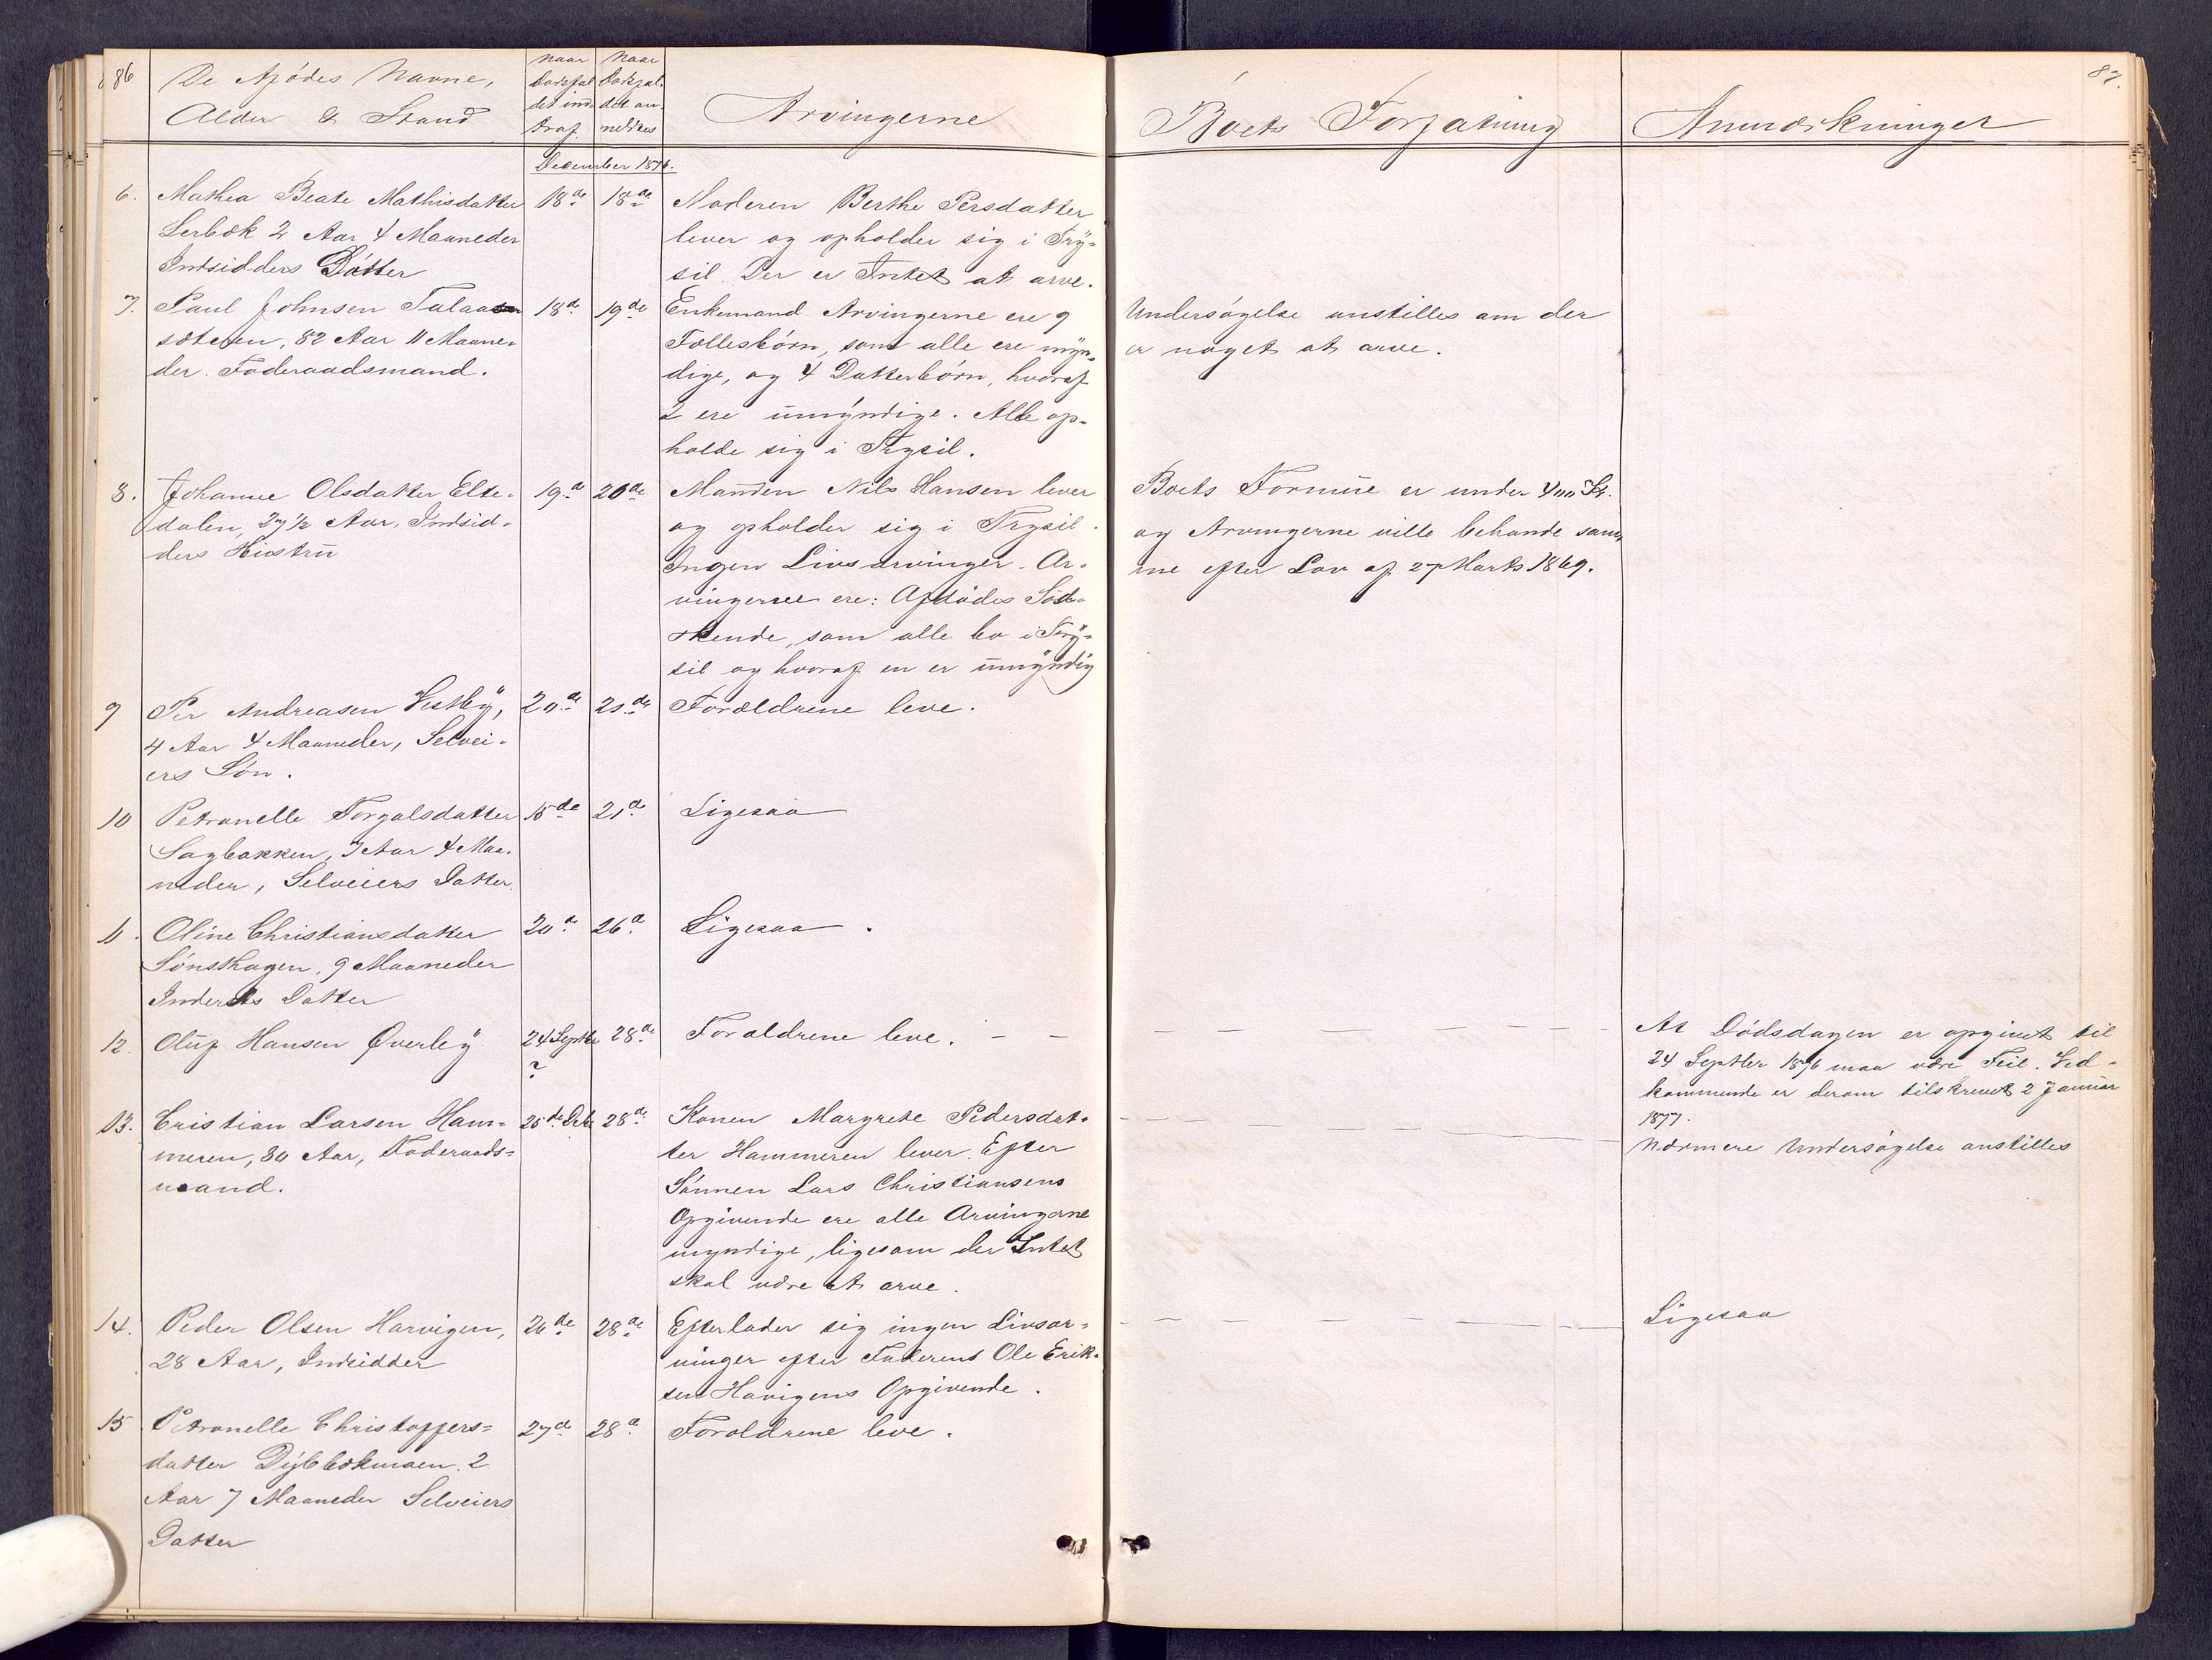 86
De Afdødes Navne,
Alder & Stand
Naar
Dødsfal
det ind-
traf.
Naar
Dødsfal-
det an-
meldtes
Arvingerne
Boets Forfatning
Anmærkninger
87.
December 1876.
6. Mathea Beate Mathisdatter 18de 18de Moderen Berthe Persdatter
Lerbæk 2 Aar 4 Maaneder lever og opholder sig i Try-
Indsidders Datter sil. Der er Intet at arve.
7. Paul Johnsen 18de 19de Enkemand. Arvingerne ere 9 Undersøgelse anstilles om der
sæteren, 82 Aar 11 Maane- Fællesbørn, som alle ere myn- er noget at arve.
der. Føderaadsmand. dige, og 4 Datterbørn, hvoraf
2 ere umyndige. Alle op-
holde sig i Trysil.
8. Johanne Olsdatter Elte- 19de 20de Manden Nils Hansen lever Boets Formue er under 400 Kr.
dalen, 27 1/2 Aar, Indsid- og opholder sig i Trysil. og Arvingerne ville behandle sam-
ders Hustru Ingen Livsarvinger. Ar- me efter Lov af 27 Marts 1869.
vingerne ere: Afdødes Sød-
skende, som alle bo i Try-
sil og hvoraf en er umyndig
9 Per Andreasen Vestby, 20de 21de Forældrene leve.
4 Aar 4 Maaneder, Selvei-
ers Søn.
10 Petronelle Torgalsdatter 15de 21de Ligesaa
Sagbakken, 3 Aar 4 Maa-
neder, Selveiers Datter.
11. Oline Christiansdatter 20de 26de Ligesaa.
Sønskhagen, 9 Maaneder
Datter
12. Oluf Hansen Øverby 24 Septbr 28de Forældrene leve. — — At Dødsdagen er opgivet til
? 24 Septbr 1876 maa være Feil. Ved-
kommende er derom tilskrevet 2 Januar
1877.
13. Cristian Larsen Ham- 25de Dcbr 28de Konen Margrete Pedersdat- Nærmere Undersøgelse anstilles
meren, 80 Aar, Føderaads- ter Hammeren lever. Efter
mand. Sønnen Lars Christiansens
Opgivende ere alle Arvingerne
myndige, ligesom der Intet
skal være at arve.
14. Peder Olsen Harvigen, 26de 28de Efterlader sig ingen Livsar- Ligesaa
28 Aar, Indsidder vinger efter Faderens Ole Erik-
sen Havigens Opgivende.
15 Petronelle Christoffers- 27de 28de Forældrene leve.
datter Dybbækmoen. 2
Aar 7 Maaneder Selveiers
Datter